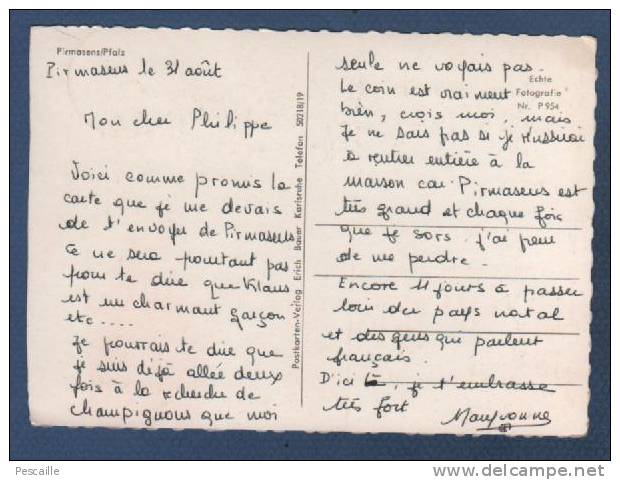 Pirmasens/Pfalz
Pirmasens le 31 août
Mon cher Philippe
Voici comme promis la
carte que je me devais
de t'envoyer de Pirmasens
Ce ne sera pourtant pas
pour te dire que Klaus
est un charmant garçon
etc....
Je pourrais te dire que
je suis déjà allée deux
fois à la recherche de
champignons que moi
Postkarten-Verlag Erich Bauer Karlsruhe Telefon 50218/19
Echte
Fotografie
Nr. P 954
seule ne voyais pas.
Le coin est vraiment
bien, crois moi, mais
Je ne sais pas si je réussirai
à rentrer entière à la
maison car Pirmasens est
très grand et chaque fois
que je sors j'ai peur
de me perdre.
Encore 11 jours à passer
loin du pays natal
et des gens qui parlent
français.
D'ici là, je t'embrasse
très fort
Maryvonne
Pescaille
www.delcampe.net